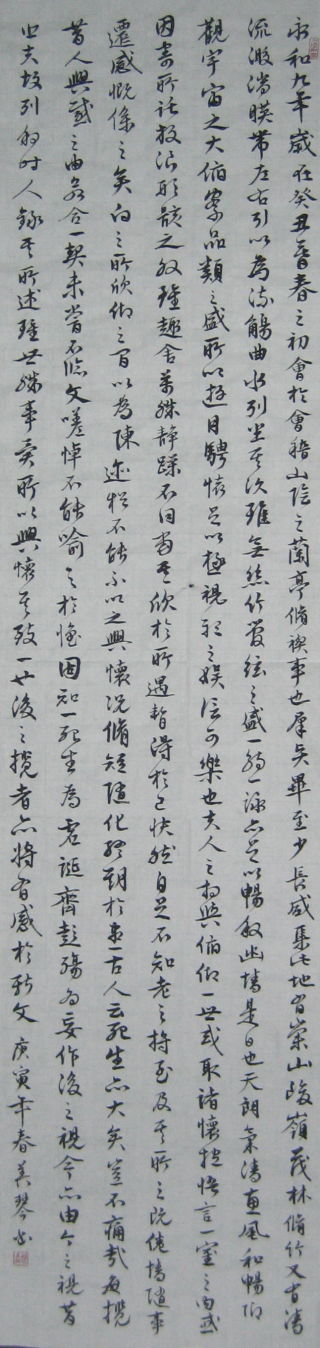 永和九年歲在癸丑暮春之初會於會稽山陰之蘭亭脩禊事也羣賢畢至少長咸集此地有崇山峻嶺茂林脩竹又有清
流激湍暎帶左右引以為流觴曲水列坐其次雖無絲竹管絃之盛一觴一詠亦足以暢敘幽情是日也天朗氣清惠風和暢仰
觀宇宙之大俯察品類之盛所以遊目騁懷足以極視聽之娛信可樂也夫人之相與俯仰一世或取諸懷抱悟言一室之內或
因寄所託放浪形骸之外雖趣舍萬殊靜躁不同當其欣於所遇暫得於己快然自足不知老之將至及其所之既倦情隨事
遷感慨係之矣向之所欣俛仰之間以為陳迹猶不能不以之興懷況脩短隨化終期於盡古人云死生亦大矣豈不痛哉每攬
昔人興感之由若合一契未嘗不臨文嗟悼不能喻之於懷固知一死生為虛誕齊彭殤為妄作後之視今亦由今之視昔
悲夫故列敘時人錄其所述雖世殊事異所以興懷其致一也後之攬者亦將有感於斯文 庚寅年春美琴書